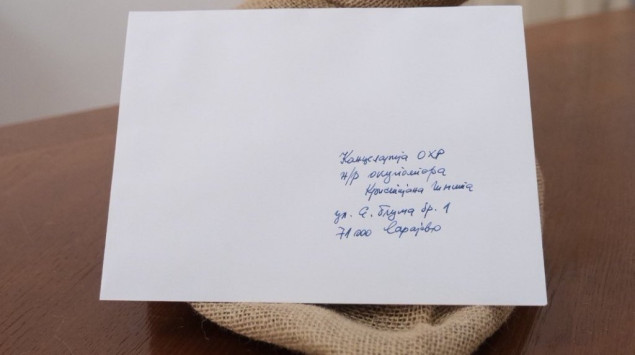 Канцеларија ОХР
н/р окупатора
Кристијана Шмита
ул. Е. Блума бр. 1
71000 Сарајево